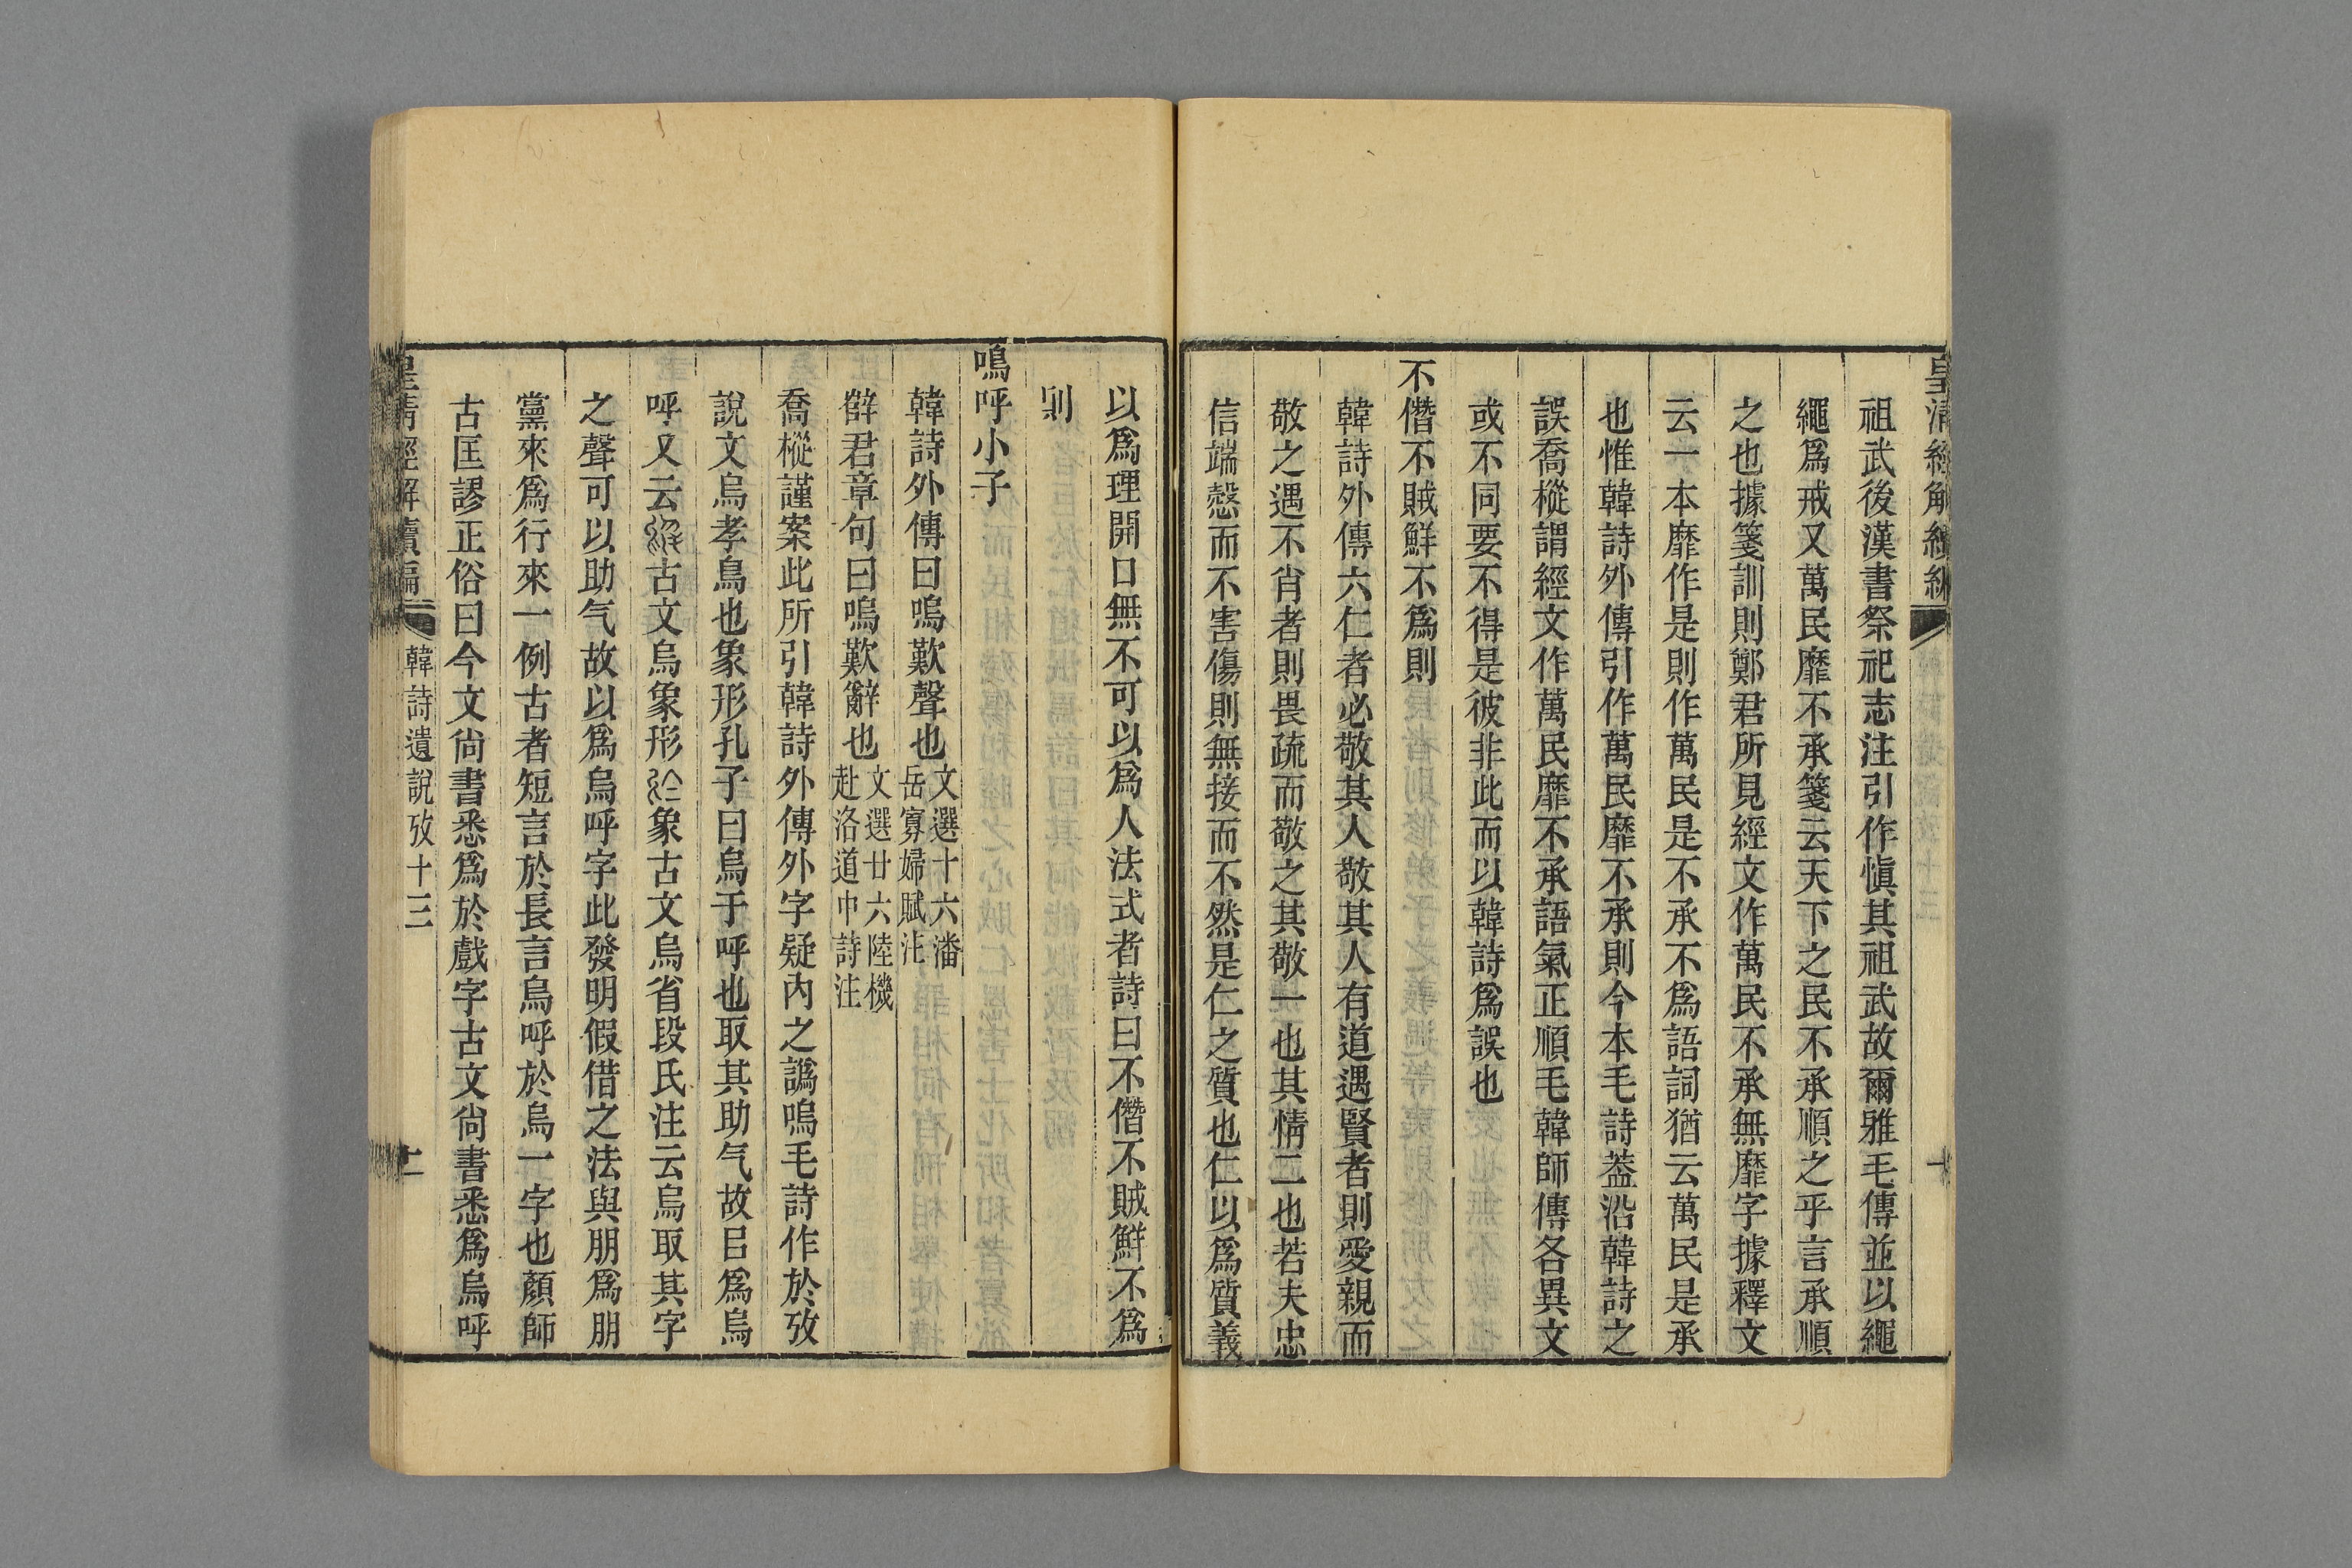 皇清經解續編
祖武後漢書祭祀志注引作愼其祖武故爾雅毛傳並以繩
繩爲戒又萬民靡不承箋云天下之民不承順之乎言承順
之也據箋訓則鄭君所見經文作萬民不承無靡字據釋文
云一本靡作是則作萬民是不承不爲語詞猶云萬民是承
也惟韓詩外傳引作萬民靡不承則今本毛詩葢沿韓詩之
誤喬樅謂經文作萬民靡不承語氣正順毛韓師傳各異文
或不同要不得是彼非此而以韓詩爲誤也
不僭不賊鮮不爲則
韓詩外傳六仁者必敬其人敬其人有道遇賢者則愛親而
敬之遇不肖者則畏疏而敬之其敬一也其情二也若夫忠
信端愨而不害傷則無接而不然是仁之質也仁以爲質義
以爲理開口無不可以爲人法式者詩曰不僭不賊鮮不爲
則
嗚呼小子
韓詩外傳曰嗚歎聲也文選十六潘岳寡婦賦注
薛君章句曰嗚歎辭也文選廿六陸機赴洛道中詩注
喬樅謹案此所引韓詩外傳外字疑內之譌嗚毛詩作於攷
說文烏孝鳥也象形孔子曰烏于呼也取其助气故㠯爲烏
呼又云古文烏象形象古文烏省段氏注云烏取其字
之聲可以助气故以爲烏呼字此發明假借之法與朋爲朋
黨來爲行來一例古者短言於長言烏呼於烏一字也顏師
古匡謬正俗曰今文尙書悉爲於戲字古文尙書悉爲烏呼
皇清經解續編 韓詩遺說攷十三